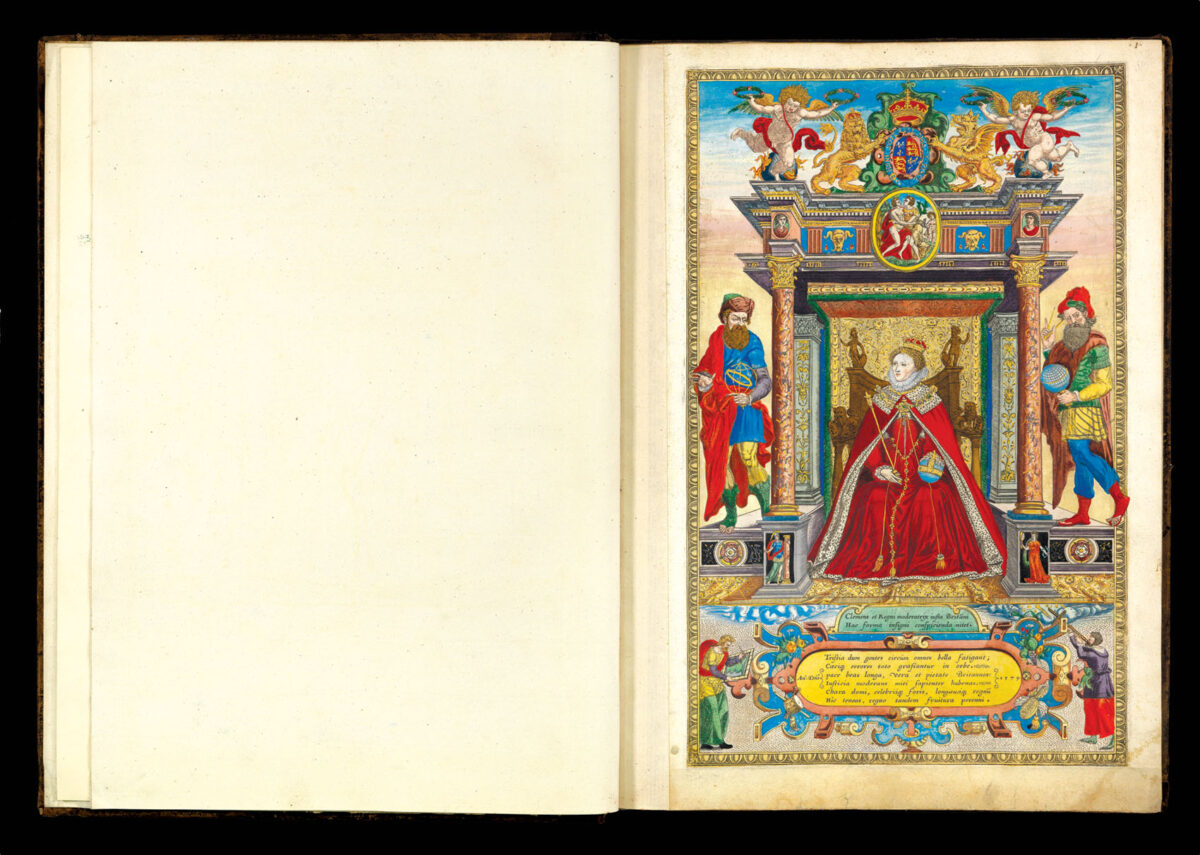 1.
Clemens et Regni moderatrix iusta Britāni
Hac forma insigni conspicienda nitet.
Tristia dum gentes circum omnes bella fatigant;
Cæciq errores toto grassantur in orbe.
pace beas longa, vera et pietate Britannos:
Iusticia moderans miti sapienter habenas.
Chara domi, celebrisq foris, longævaq regnū
Hic teneas, regno tandem fruitura perenni.
1579